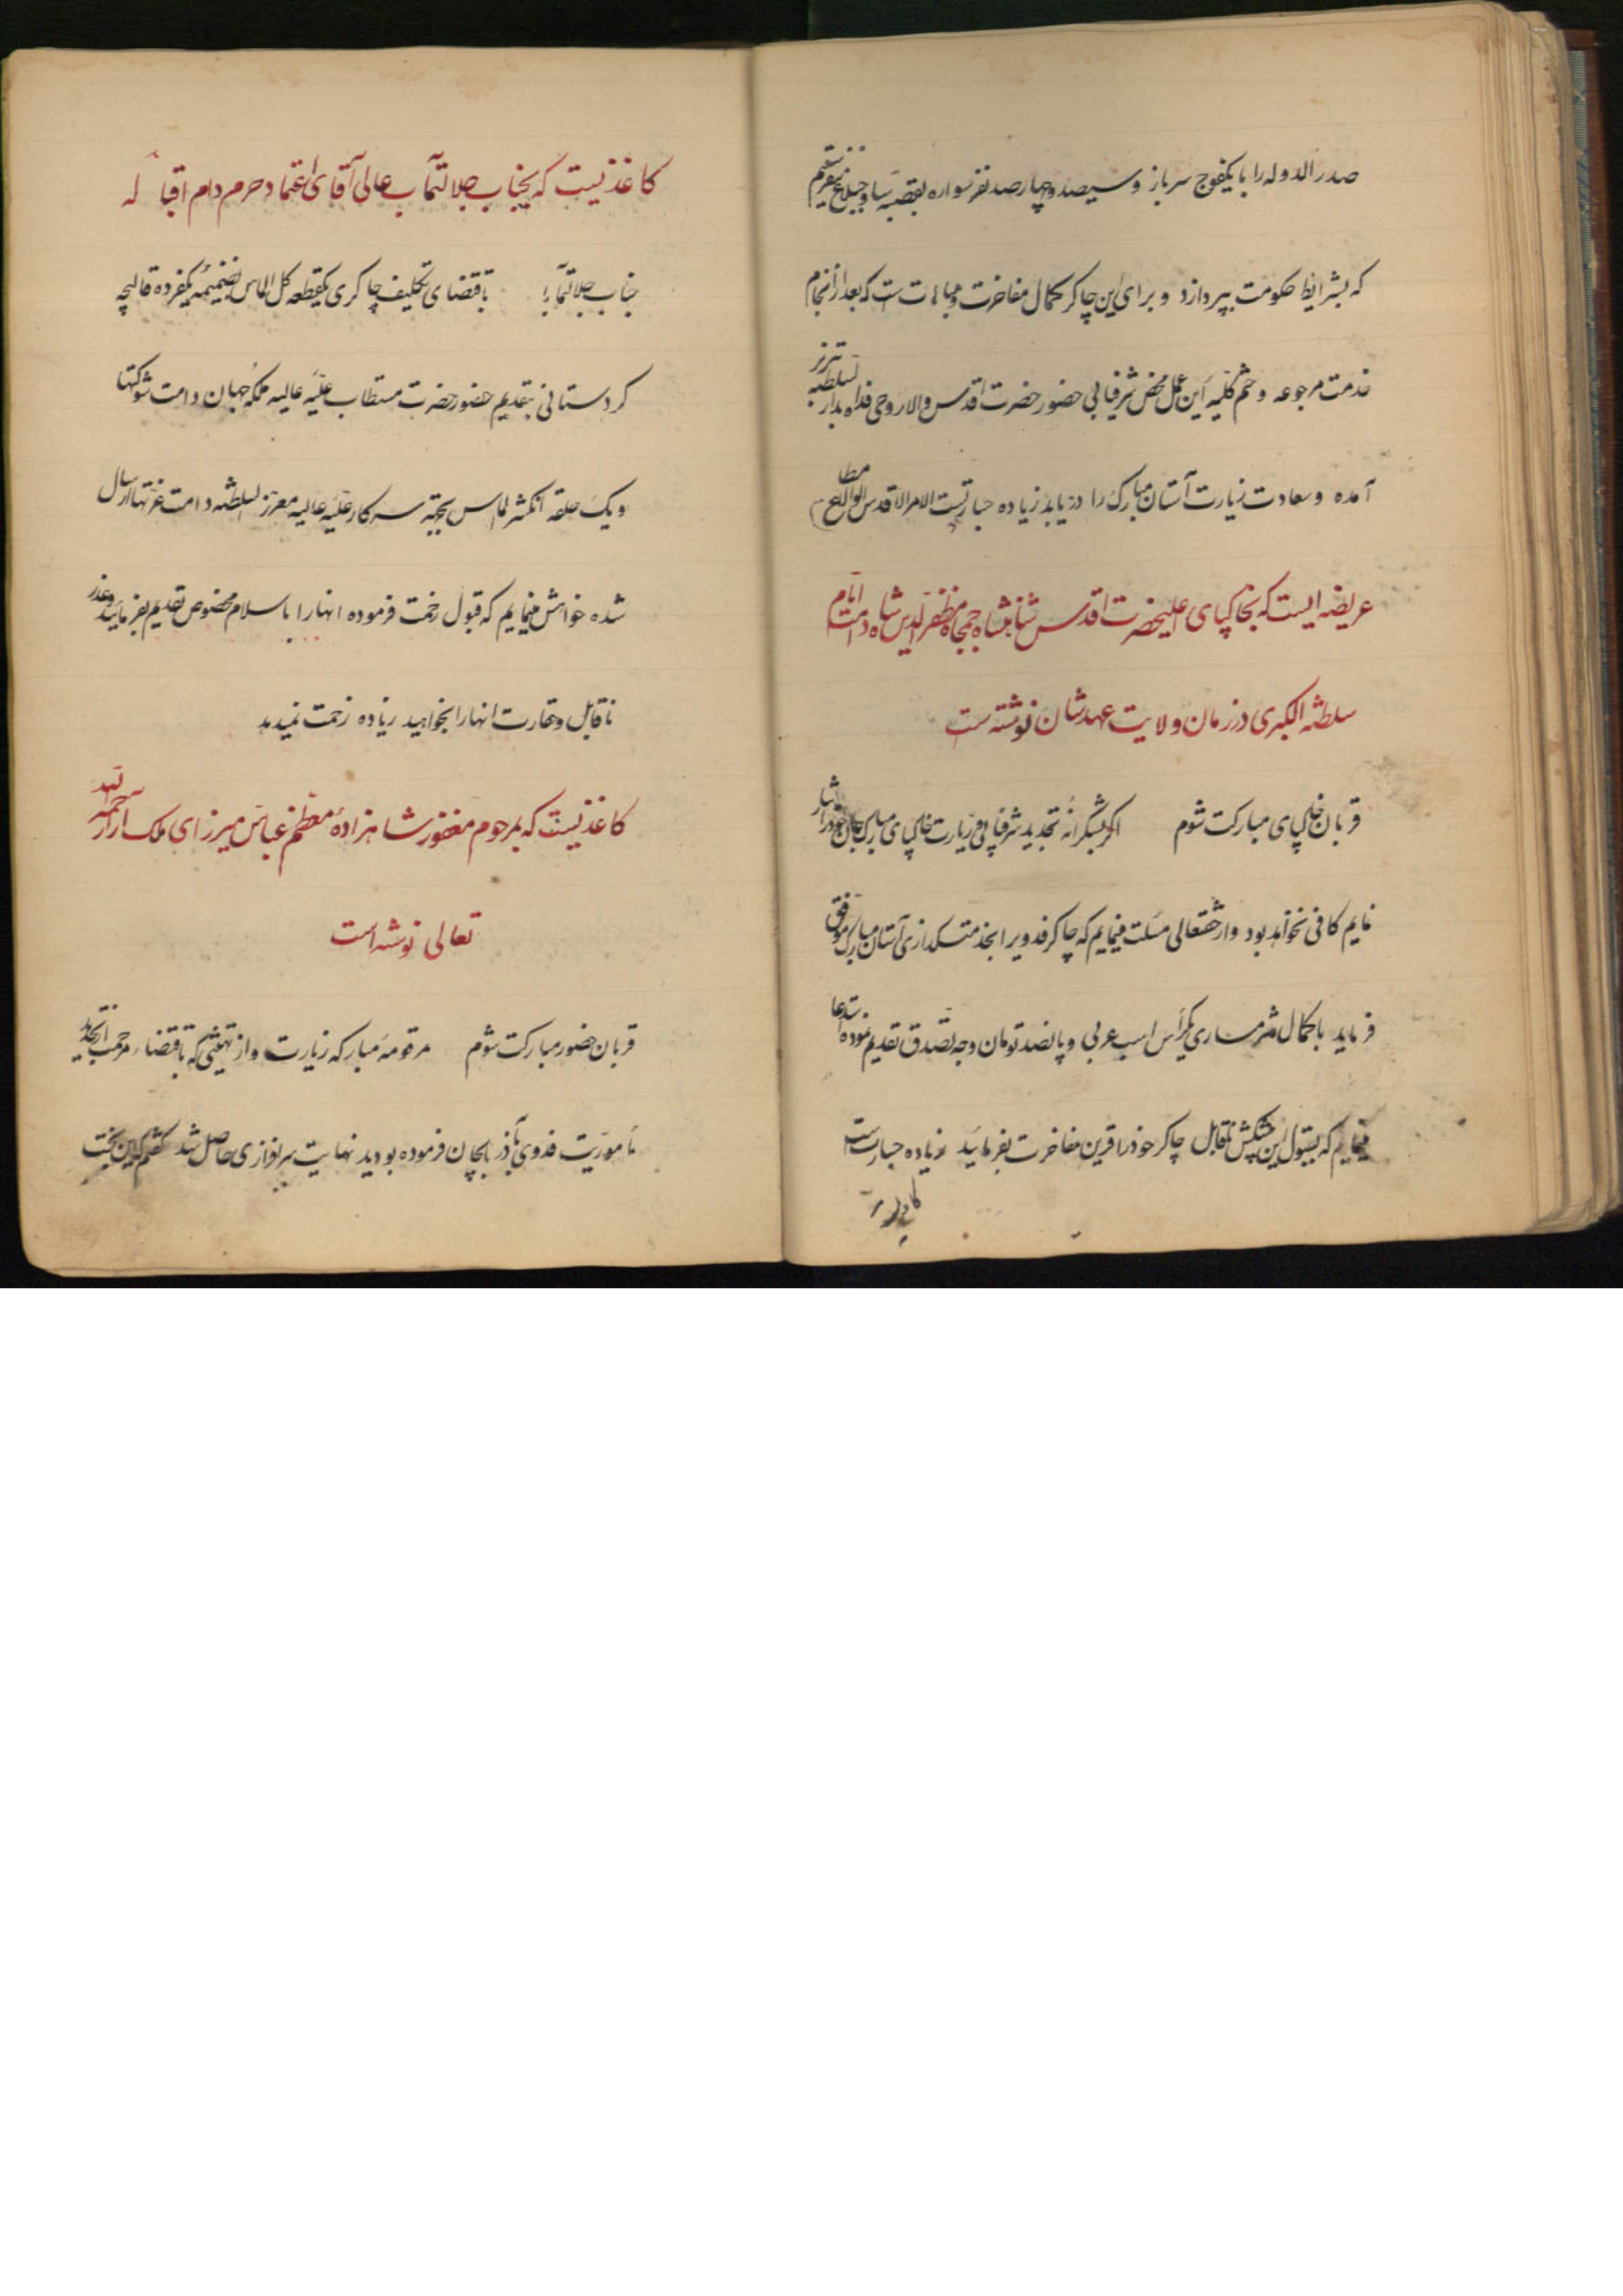 صدر الدوله را با یکفوج سرباز و سیصد و چهارصد نفر سواره بقصبه ساوجبلاغ میفرستیم
که بشرایط حکومت بپردازد و برای این چاکر کمال مفاخرت و مباهات است که بعد از انجام
خدمت مرجوعه و ختم کلیه این عمل محض شرفیابی حضور حضرت اقدس والا روحی فداه بدار السلطنه تبریز
آمده و سعادت زیارت آستان مبارک را دریابد زیاده جسارتست الامر الاقدس الاعلی مطاع
عریضه ایست که بخاکپای اعلیحضرت اقدس شاهنشاه جمجاه مظفرالدین شاه دامت ایام
سلطنته الکبری در زمان ولایت عهدشان نوشته است
قربان خاکپای مبارکت شوم اگر بشکرانه تجدید شرفیابی و زیارت خاکپای مبارک جان خود را نثار
نمایم کافی نخواهد بود و از حقتعالی مسئلت مینمایم که چاکر فدویرا بخدمتگذاری آستان مبارک موفق
فرماید با کمال شرمساری یکرأس اسب عربی و پانصد تومان وجه تصدق تقدیم نموده استدعا
مینمایم که بقبول این پیشکش ناقابل چاکر خود را قرین مفاخرت بفرمایند زیاده جسارتست
کاغذیست که بجناب جلالتمآب عالی آقای اعتماد حرم دام اقباله
جناب جلالتمآبا باقتضای تکلیف چاکری یکقطعه گل الماس بضمیمه یکفرده قالیچه
کردستانی بتقدیم حضور حضرت مستطاب علیه عالیه ملکه جهان دامت شوکتها
و یک حلقه انگشتر الماس بجهة سرکار علیه عالیه معزز السلطنه دامت عزتها ارسال
شده خواهش مینمایم که قبول زحمت فرموده انها را با سلام مخصوص تقدیم بفرمایند و عذر
ناقابل و حقارت انها را بخواهید زیاده زحمت نمیدهد
کاغذیست که بمرحوم مغفور شاهزاده معظم عباس میرزای ملک آرا رحمه الله
تعالی نوشته است
قربان حضور مبارکت شوم مرقومه مبارکه زیارت و از تهنیتی که باقتضاء مرحمت از تجدید
مأموریت فدوی بآذربایجان فرموده بودید نهایت سرافرازی حاصل شد